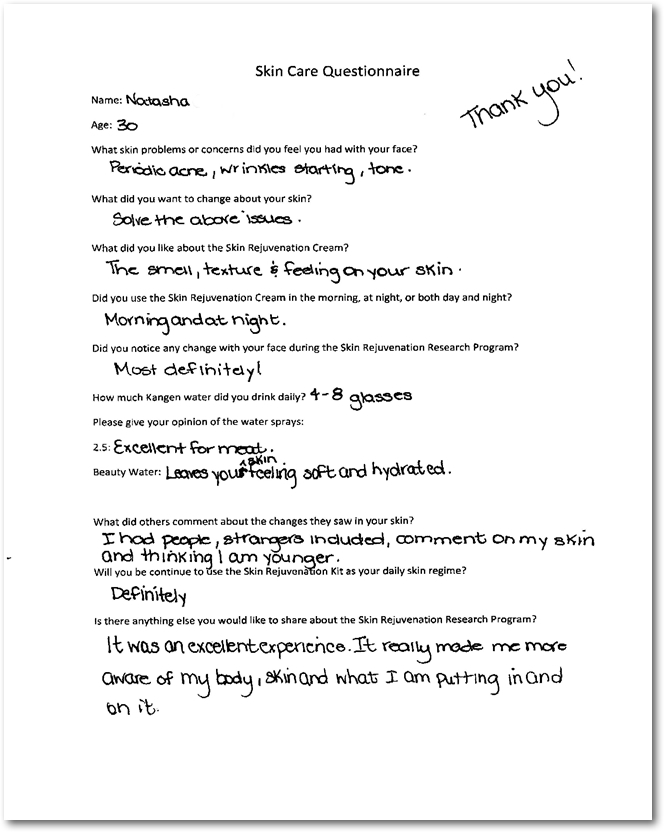 Skin Care Questionnaire
Thank you!
Name: Natasha
Age: 30
What skin problems or concerns did you feel you had with your face?
Periodic acne, wrinkles starting, tone.
What did you want to change about your skin?
Solve the above issues.
What did you like about the Skin Rejuvenation Cream?
The smell, texture & feeling on your skin.
Did you use the Skin Rejuvenation Cream in the morning, at night, or both day and night?
Morning and at night.
Did you notice any change with your face during the Skin Rejuvenation Research Program?
Most definitely!
How much Kangen water did you drink daily? 4-8 glasses
Please give your opinion of the water sprays:
2.5: Excellent for meat.
Beauty Water: Leaves your skin feeling soft and hydrated.
What did others comment about the changes they saw in your skin?
I had people, strangers included, comment on my skin
and thinking I am younger.
Will you be continue to use the Skin Rejuvenation Kit as your daily skin regime?
Definitely
Is there anything else you would like to share about the Skin Rejuvenation Research Program?
It was an excellent experience. It really made me more
aware of my body, skin and what I am putting in and
on it.